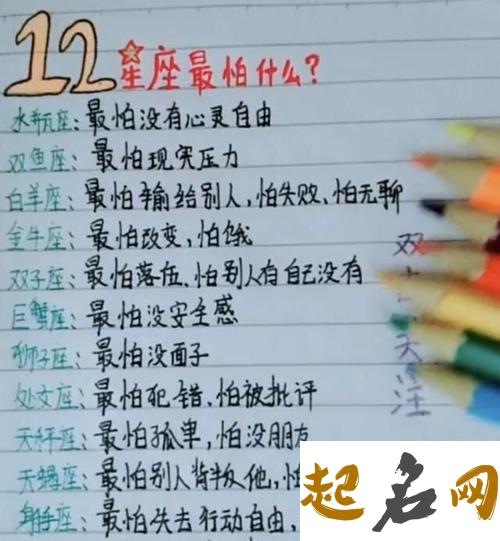 12星座最怕什么?
水瓶座:最怕没有心灵自由
双鱼座:最怕现实压力
白羊座:最怕输给别人,怕失败、怕无聊
金牛座:最怕改变,怕饿
双子座:最怕落伍、怕别人有自己没有
巨蟹座:最怕没安全感
狮子座:最怕没面子
处女座:最怕犯错、怕被批评
天秤座:最怕孤单,怕没朋友
天蝎座:最怕别人背叛他,怕
射手座:最怕失去行动自由、
双
关
注
起名网